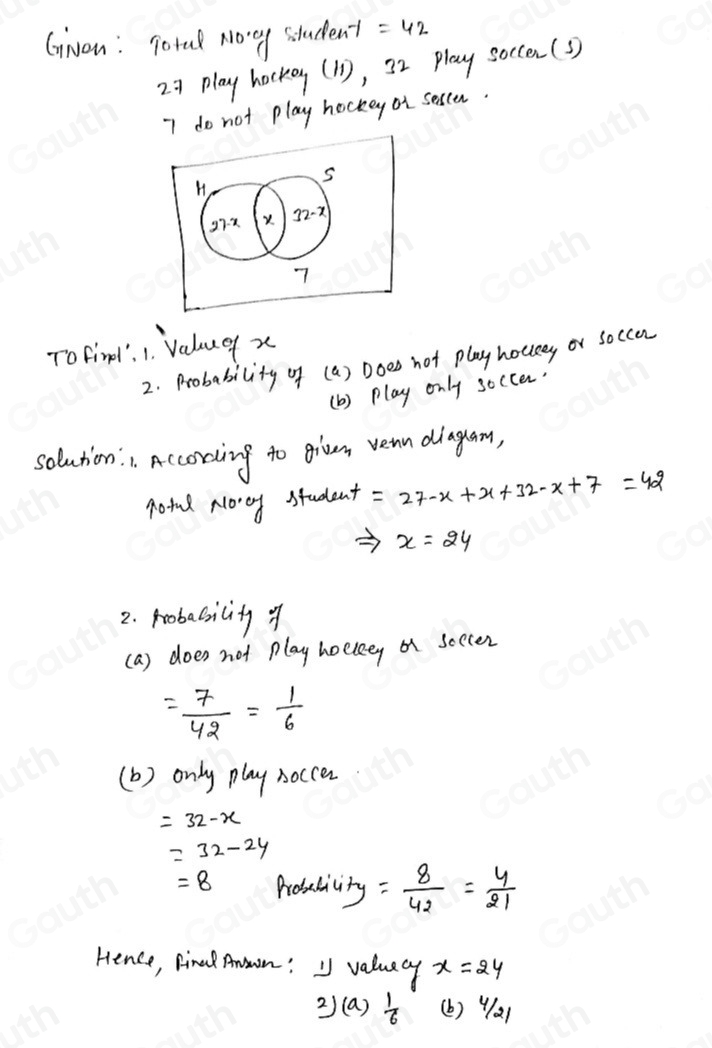 Given: Total No. of Student = 42
27 play hockey (H), 32 play soccer (S)
7 do not play hockey or soccer.
H S
27-x x 32-x
7
To find: 1. Value of x
2. Probability of (a) Does not play hockey or soccer
(b) play only soccer.
Solution: 1. According to given venn diagram,
Total No. of student = 27-x+x+32-x+7 = 42
⇒ x = 24
2. Probability of
(a) does not play hockey or soccer
= 7/42 = 1/6
(b) only play soccer
= 32-x
= 32-24
= 8 Probability = 8/42 = 4/21
Hence, Final Answer: 1) value of x = 24
2) (a) 1/6 (b) 4/21
Gauth